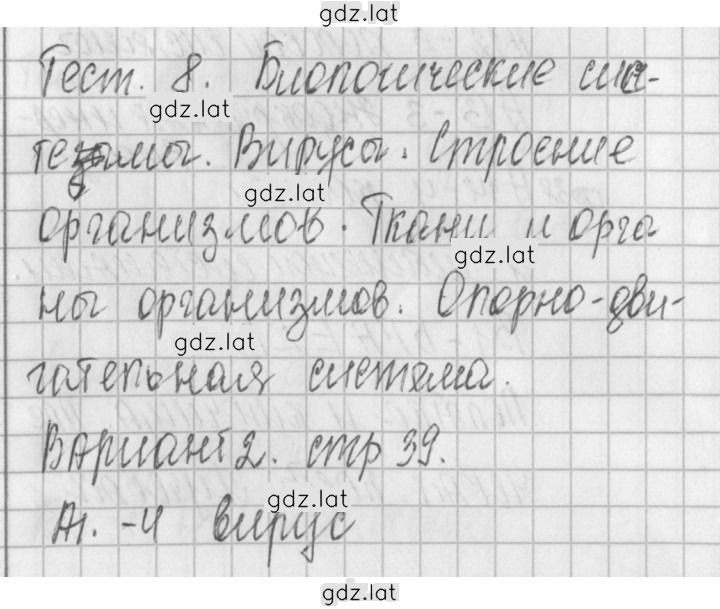 gdz.lat
Тест. 8. Биологические сис-
gdz.lat
темы. Вирусы. Строение
gdz.lat
организмов. Ткани и орга
gdz.lat
ны организмов. Опорно-дви-
gdz.lat
гательная система.
Вариант 2. стр 39.
gdz.lat
А1. -4 вирус
gdz.lat